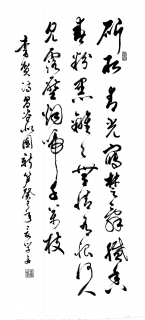 斫取青光寫楚辭膩香
春粉黑離々無情有恨何人
見露壓烟啼千萬枝
李賀詩昌谷北園新筍